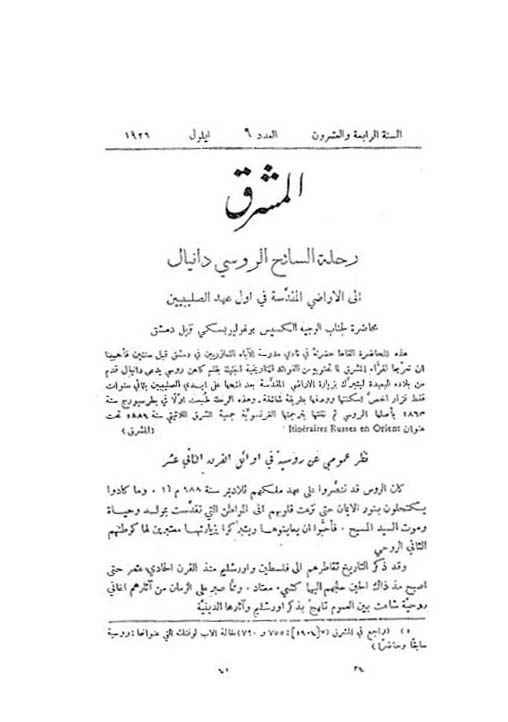 السنة الرابعة والعشرون العدد ٩ ايلول ١٩٢٦
المشرق
رحلة السائح الروسي دانيال
الى الاراضي المقدّسة في اول عهد الصليبيين
محاضرة لجناب الوجيه الكسيس بوغوليوبسكي نزيل دمشق
هذه المحاضرة القاها حضرتهُ في نادي مدرسة الآباء اللعازريين في دمشق قبل سنتين فأحببنا
ان نعرّبها لقرّاء المشرق لما تحتويه من الفوائد التاريخية الجليلة بقلم كاهن روسي يدعى دانيال قدم
من بلاده البعيدة ليتبرّك بزيارة الاراضي المقدّسة بعد فتحها على ايدي الصليبيين بثاني سنوات
فقط فزار اخصّ امكنتها ووصفها بطريقة شائقة. وهذه الرحلة طُبعت اوّلًا في بطرسبورج سنة
١٨٦٣ بأصلها الروسي ثم نقلتها بترجمتها الفرنسويَّة جمعية الشرق اللاتيني سنة ١٨٨٩ تحت
عنوان Itinéraires Russes en Orient (المشرق)
نظر عمومي عن روسية في اوائل القرن الثاني عشر
كان الروس قد تنصَّروا على عهد ملكهم ڤلاديمر سنة ٩٨٨ م ١). وما كادوا
يستكحلون بنور الايمان حتى نزعت قلوبهم الى المواطن التي تقدَّست بمولد وحياة
وموت السيد المسيح. فأحبّوا ان يعاينوها ويتبرّكوا بزيارتها معتبرين لها كوطنهم
الثاني الروحي
وقد ذكر التاريخ تقاطرهم الى فلسطين واورشليم منذ القرن الحادي عشر حتى
اصبح مذ ذاك الحين حجّهم اليها كشيء معتاد. وممَّا صبر على الزمان من آثارهم اغاني
روحيَّة شاعت بين العموم تلهج بذكر اورشليم وآثارها الدينيَّة
١) (راجع في المشرق (٧ [١٩٠٤]: ٧٥٥ و ٧٩٠) مقالة الاب لوفنك التي عنوانها: روسية
سابقًا وحاضرًا)
٤١ ٢٤